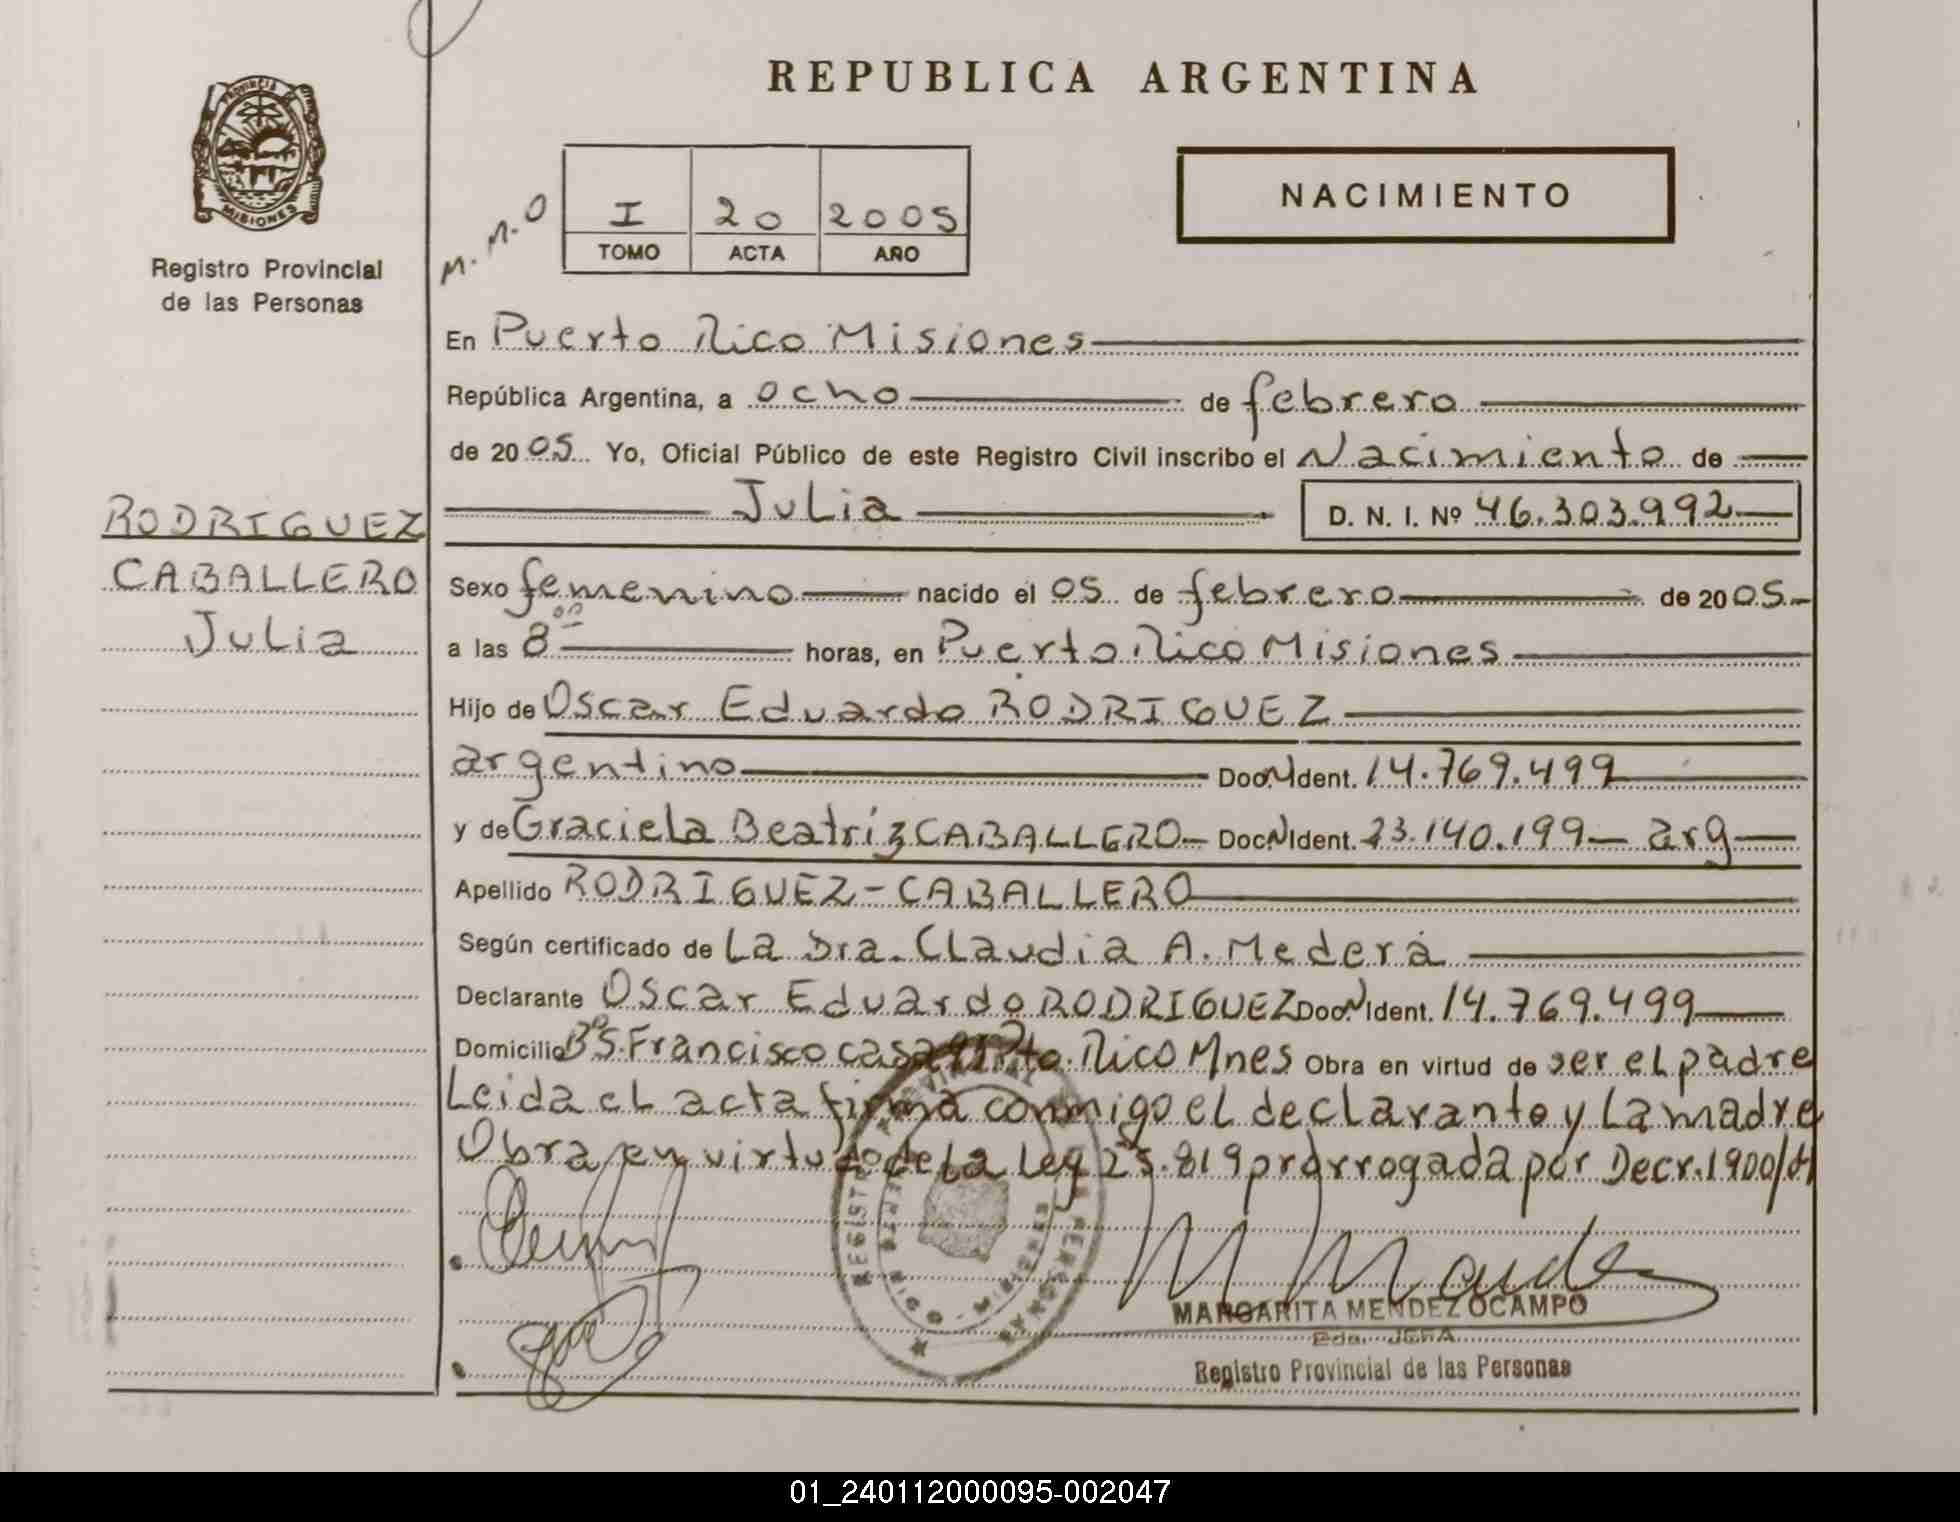 REPUBLICA ARGENTINA
PROVINCIA DE
MISIONES
Registro Provincial
de las Personas
M. M. O
I 20 2005
TOMO ACTA AÑO
NACIMIENTO
En Puerto Rico Misiones
República Argentina, a ocho de febrero
de 2005 Yo, Oficial Público de este Registro Civil inscribo el Nacimiento de
Julia D. N. I. Nº 46.303.992
RODRIGUEZ
CABALLERO
Julia
Sexo femenino nacido el 05 de febrero de 2005
a las 8 00 horas, en Puerto Rico Misiones
Hijo de Oscar Eduardo RODRIGUEZ
argentino Doc. N Ident. 14.769.499
y de Graciela Beatriz CABALLERO Doc N Ident. 23.140.199 arg
Apellido RODRIGUEZ-CABALLERO
Según certificado de La Dra. Claudia A. Medera
Declarante Oscar Eduardo RODRIGUEZ Doc. N Ident. 14.769.499
Domicilio Bº S. Francisco casa Pto. Rico Mnes Obra en virtud de ser el padre
Leida el acta firma conmigo el declarante y La madre
Obra en virtud de la Ley 25.819 prorrogada por Decr. 1900/04
REGISTRO PROVINCIAL DE LAS PERSONAS
MISIONES
MARGARITA MENDEZ OCAMPO
2da. JEFA
Registro Provincial de las Personas
01_240112000095-002047